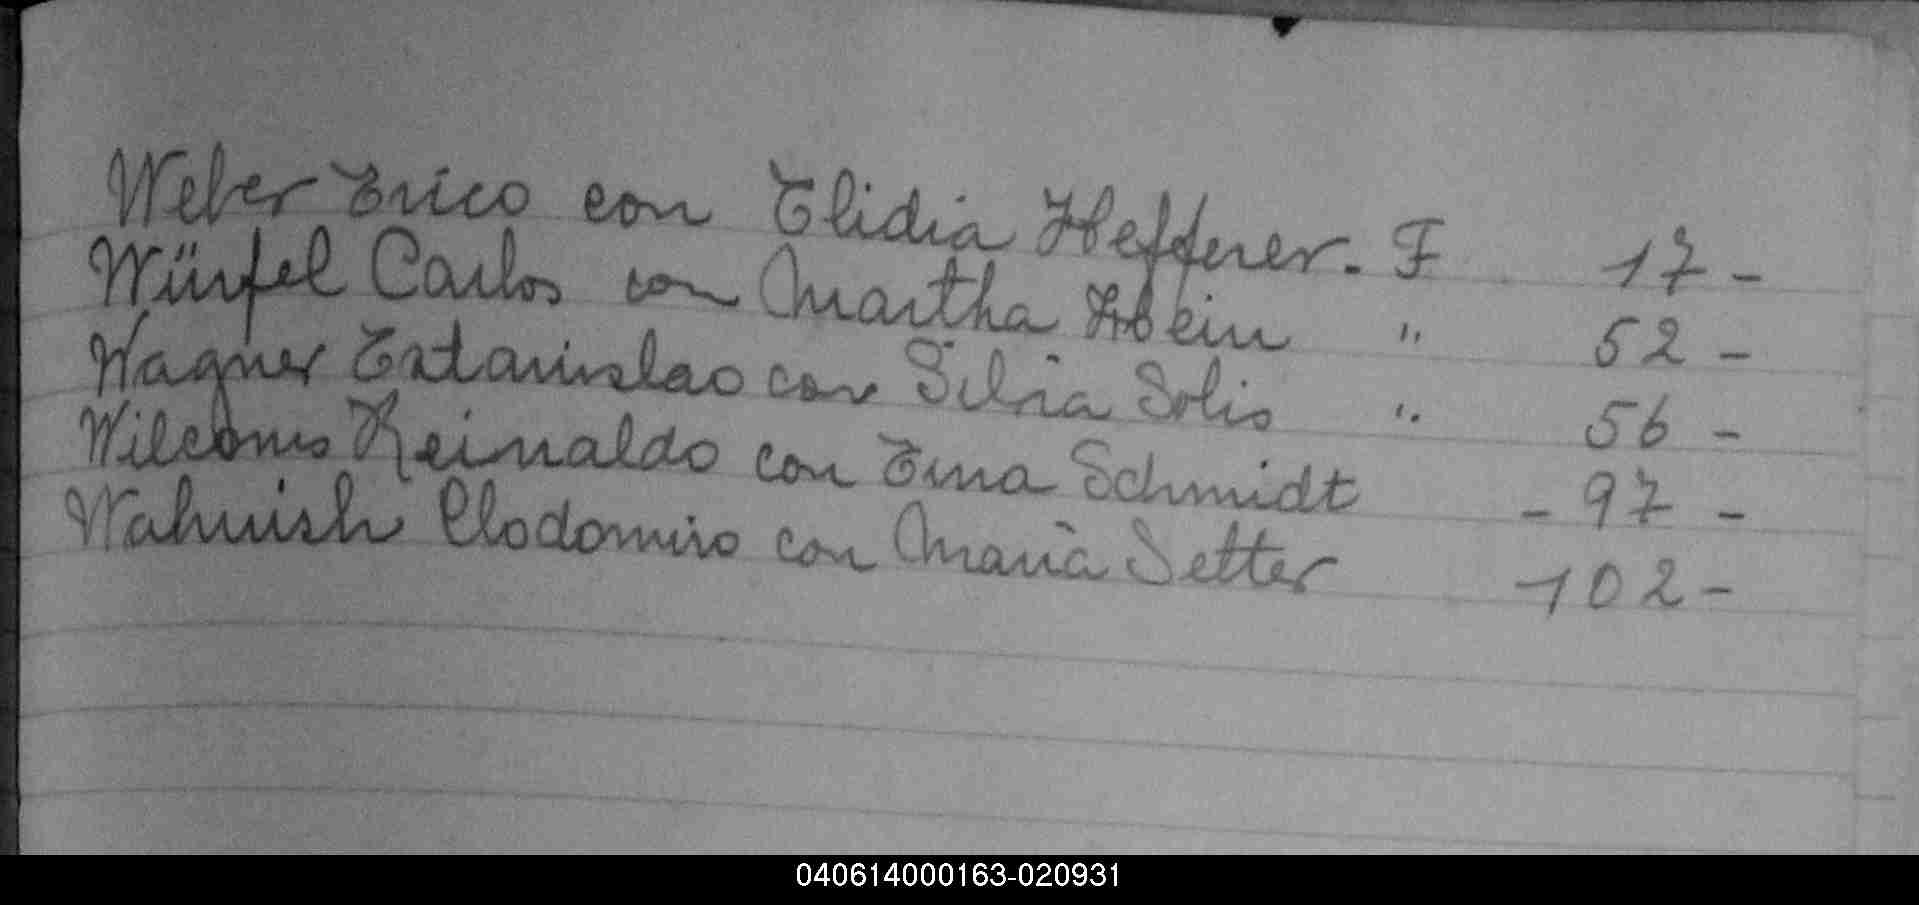 Weber Erico con Elidia Hefferer. F 17 -
Würfel Carlos con Martha Hein " 52 -
Wagner Estanislao con Silvia Solis " 56 -
Reinaldo con Ema Schmidt - 97 -
Clodomiro con Maria Setter - 102 -
040614000163-020931